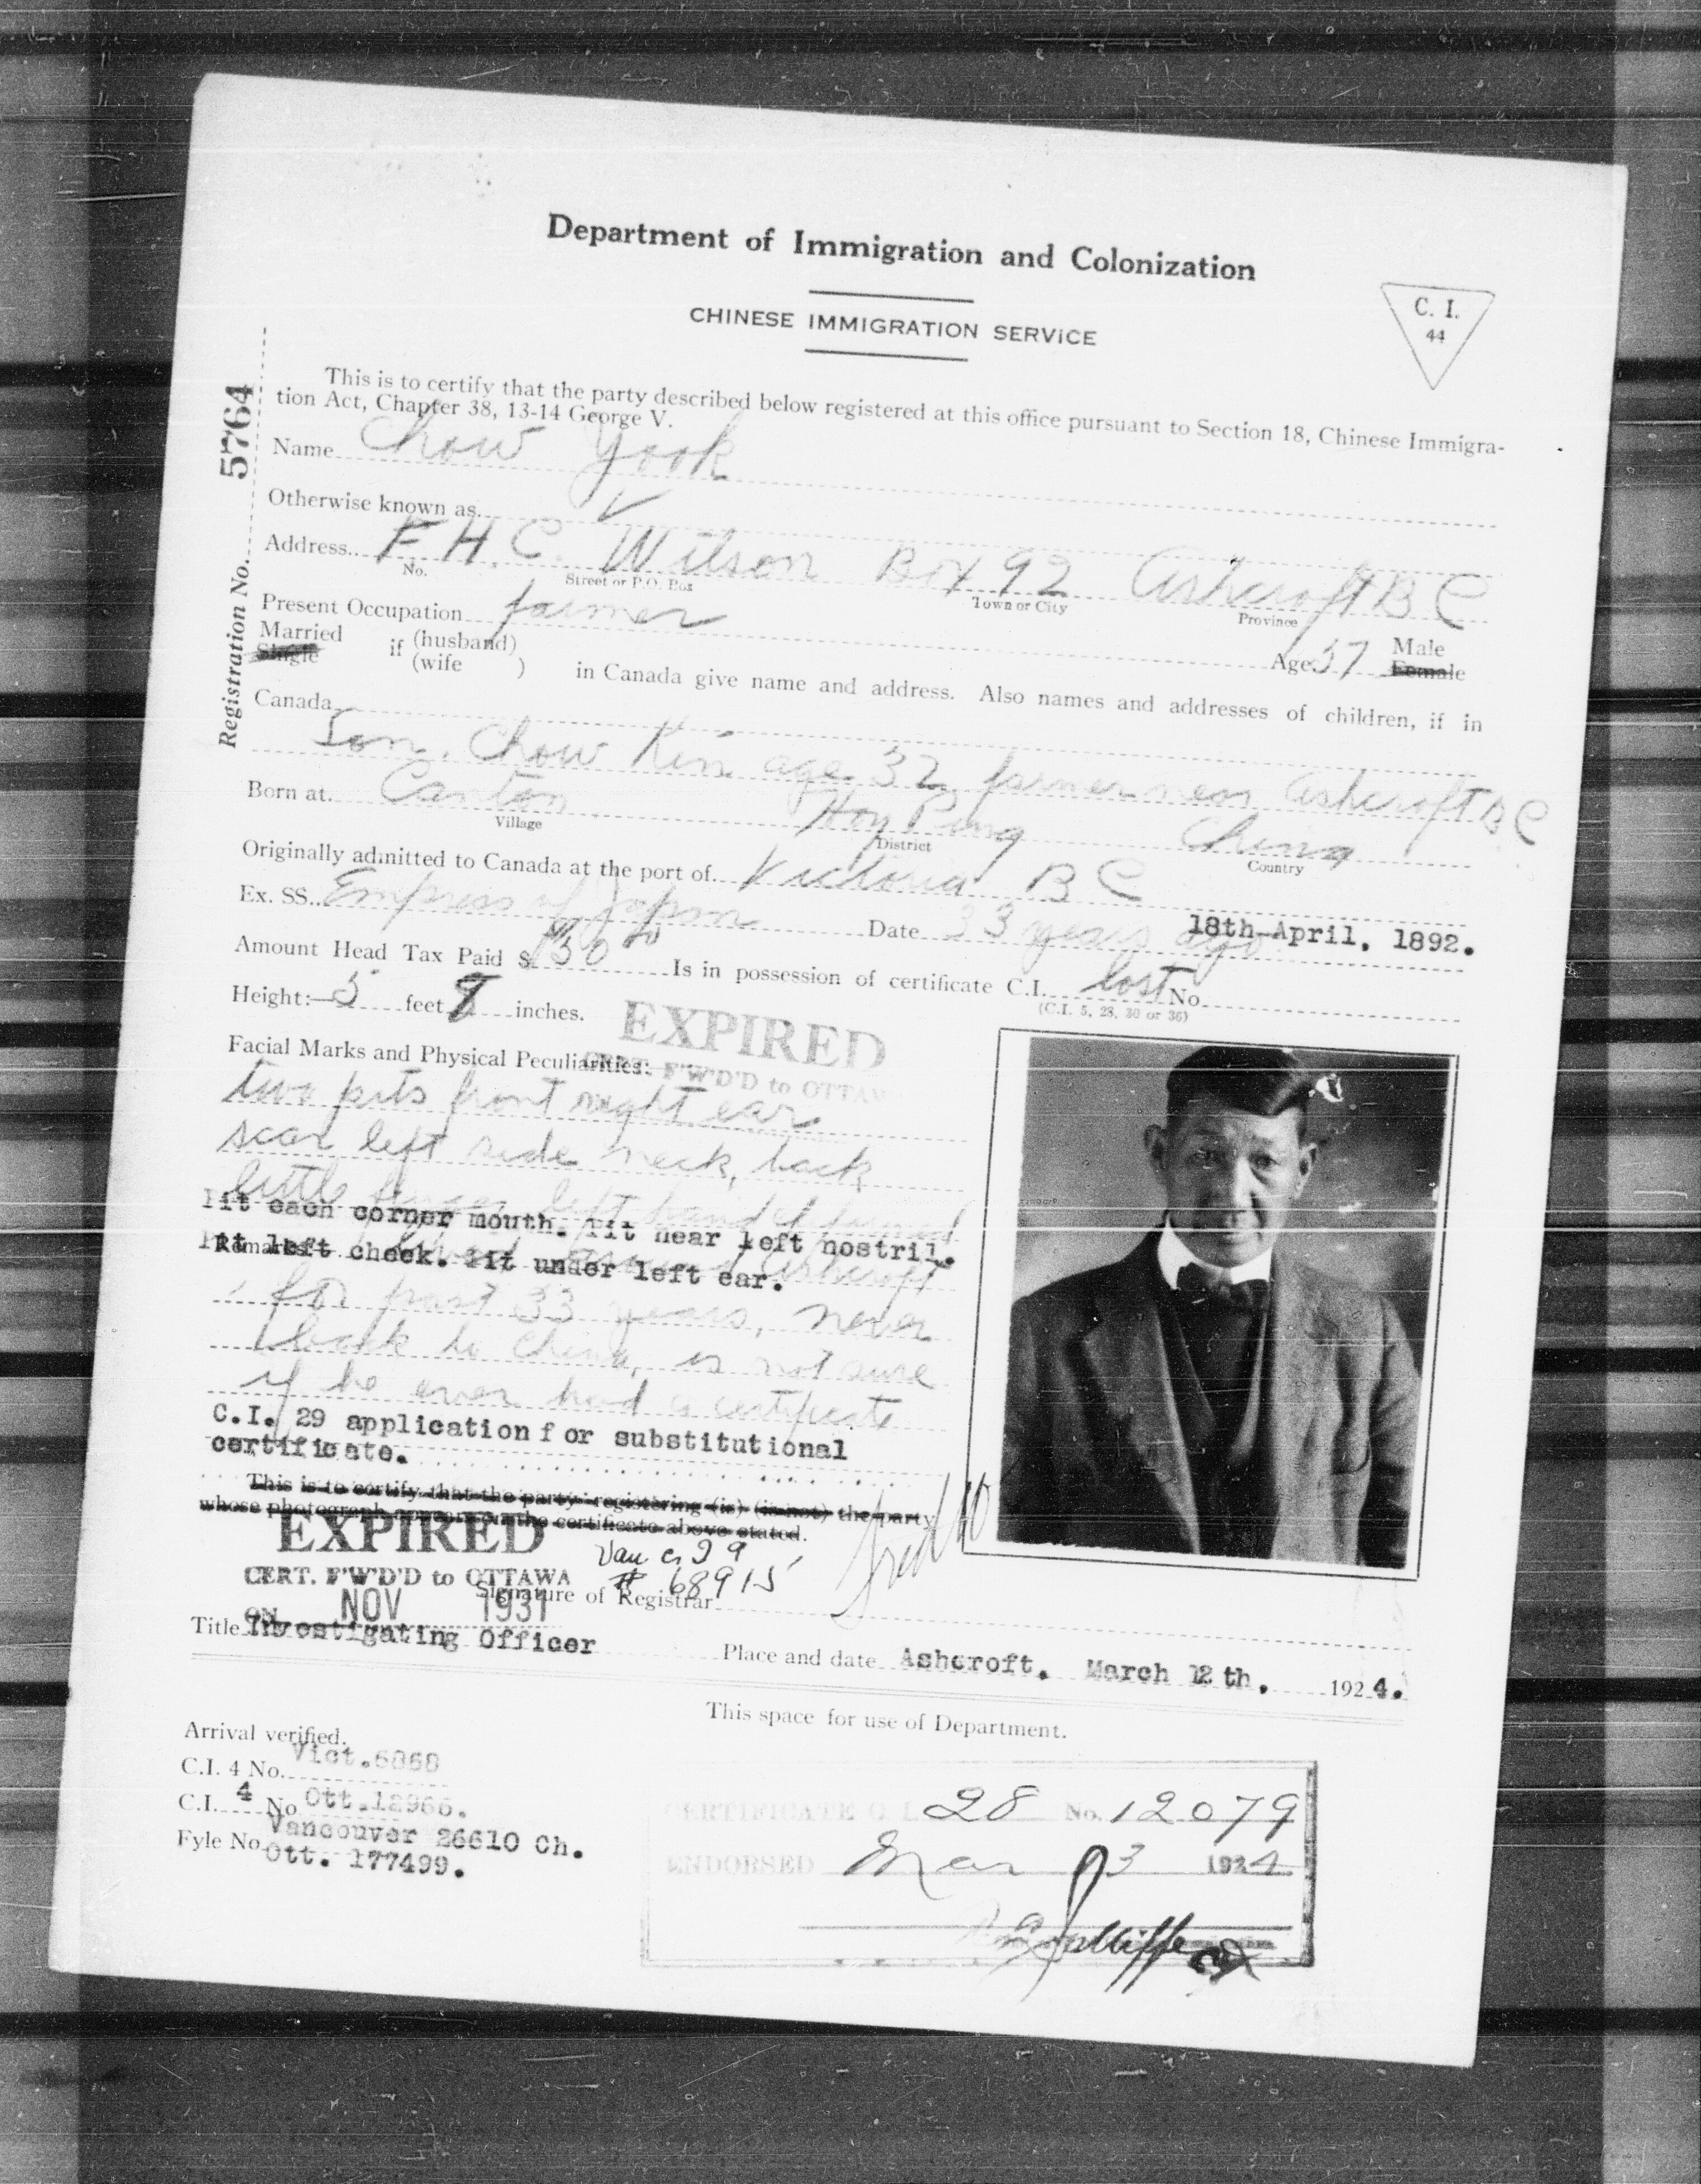 Department of Immigration and Colonization
CHINESE IMMIGRATION SERVICE
C. I.
44
Registration No. 5764
This is to certify that the party described below registered at this office pursuant to Section 18, Chinese Immigra-
tion Act, Chapter 38, 13-14 George V.
Name Chow Yook
Otherwise known as
Address F. H. C. Wilson Box 92 Ashcroft B C
No. Street or P.O. Box Town or City Province
Present Occupation farmer Age 57 Male
Female
Married
Single if (husband)
(wife ) in Canada give name and address. Also names and addresses of children, if in
Canada
Son. Chow Kin age 32 farmer near Ashcroft B C
Born at Canton Hoy Ping China
Village District Country
Originally admitted to Canada at the port of Victoria B C
Ex. SS. Empress of Japan Date 33 years ago 18th April, 1892.
Amount Head Tax Paid $ 50 00 Is in possession of certificate C.I. lost No.
(C.I. 5, 28, 30 or 36)
Height:— 5 feet 8 inches.
EXPIRED
CERT. F'W'D'D to OTTAWA
Facial Marks and Physical Peculiarities:
two pits front right ear
scar left side neck, back
little finger left hand deformed
Pit each corner mouth. Pit near left nostril.
Pit left cheek. Pit under left ear.
Remarks Ashcroft
for past 33 years, never
back to China, is not sure
if he ever had a certificate
C.I. 29 application for substitutional
certificate.
This is to certify that the party registering (is) (is not) the party
whose photograph appears on the certificate above stated.
EXPIRED
CERT. F'W'D'D to OTTAWA
ON NOV 1931
# 68915
Signature of Registrar
Title Investigating Officer
Place and date Ashcroft. March 12th, 1924.
This space for use of Department.
Arrival verified.
C.I. 4 No. Vict.6868
C.I. 4 No Ott.12966.
Fyle No. Vancouver 26610 Ch.
Ott. 177499.
CERTIFICATE C. I. 28 No. 12079
ENDORSED Mar 1924